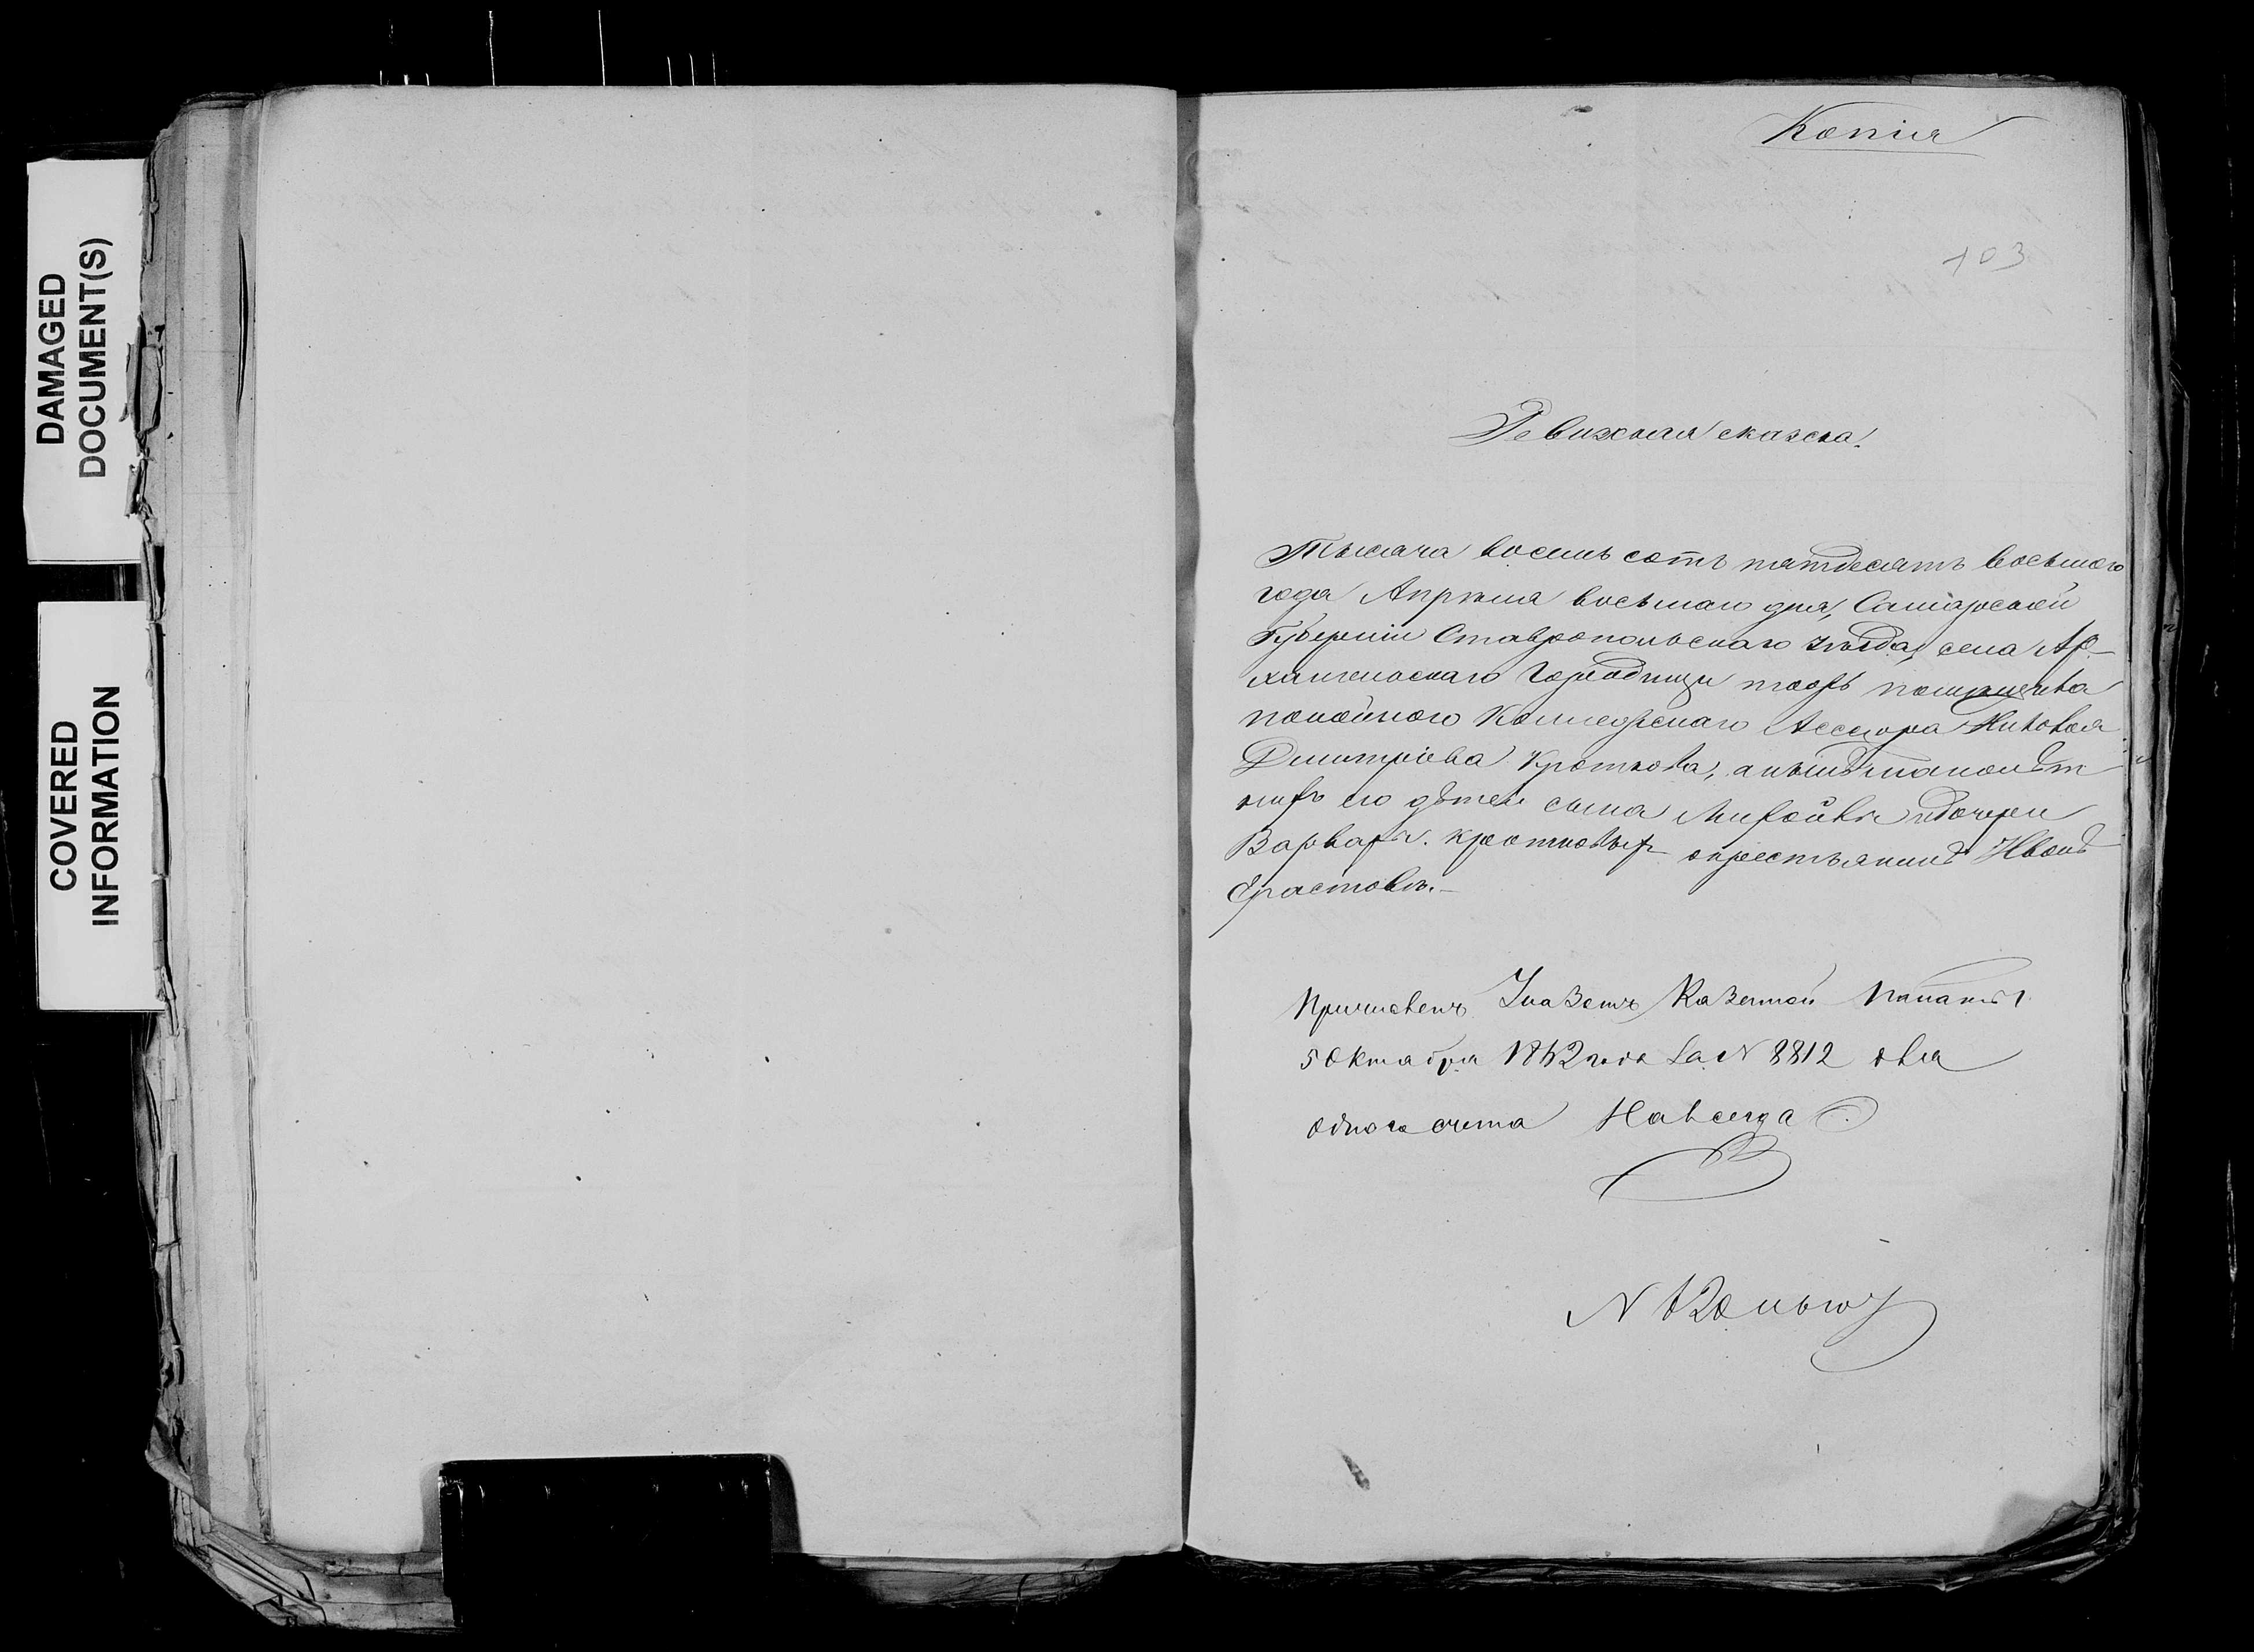 DAMAGED
DOCUMENT(S)
COVERED
INFORMATION
Копія
103
Ревизская сказка.
Тысяча восемь сотъ пятдесятъ восьмого
года Апрѣля восьмаго дня, Самарской
Губерніи Ставропольскаго уѣзда, села Ар-
хангельскаго Городищи тожъ помѣщика
покойного Коллежскаго Ассесора Николая
Дмитріева Кроткова, а нынѣ малолѣт
нихъ его дѣтей сына и дочери
Варвары Кротковыхъ о крестьянинѣ Иванѣ
Ерастовѣ.
Причисленъ Указомъ Казенной Палаты
5 Октября года За N 8812 для
одного счета Навсегда